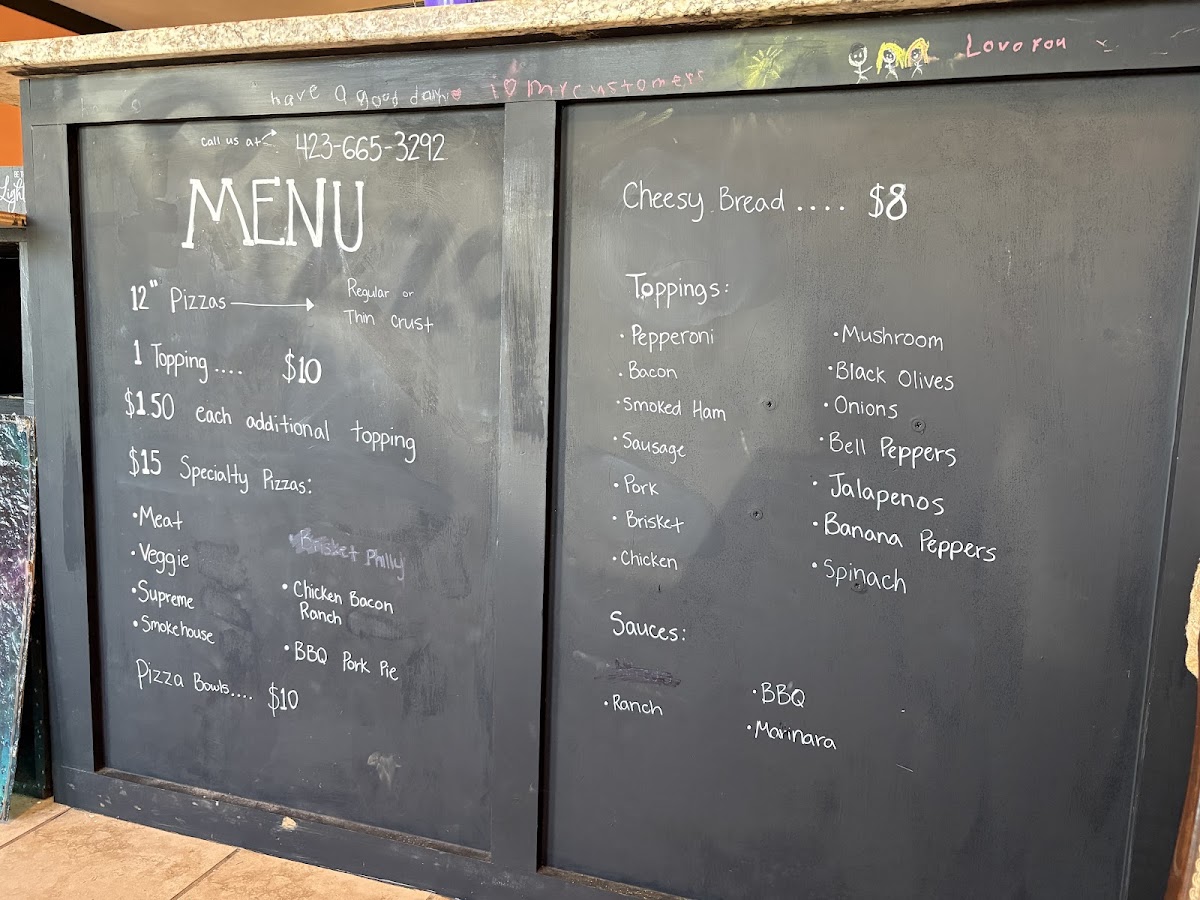 have a good day
i ♡ my customers
Love you
call us at→ 423-665-3292
MENU
12" Pizzas → Regular or
Thin crust
1 Topping.... $10
$1.50 each additional topping
$15 Specialty Pizzas:
•Meat
•Veggie
•Supreme
•Smokehouse
Brisket Philly
•Chicken Bacon
Ranch
•BBQ Pork Pie
Pizza Bowls.... $10
Cheesy Bread .... $8
Toppings:
•Pepperoni
•Bacon
•Smoked Ham
•Sausage
•Pork
•Brisket
•Chicken
•Mushroom
•Black Olives
•Onions
•Bell Peppers
•Jalapenos
•Banana Peppers
•Spinach
Sauces:
•Ranch
•BBQ
•Marinara